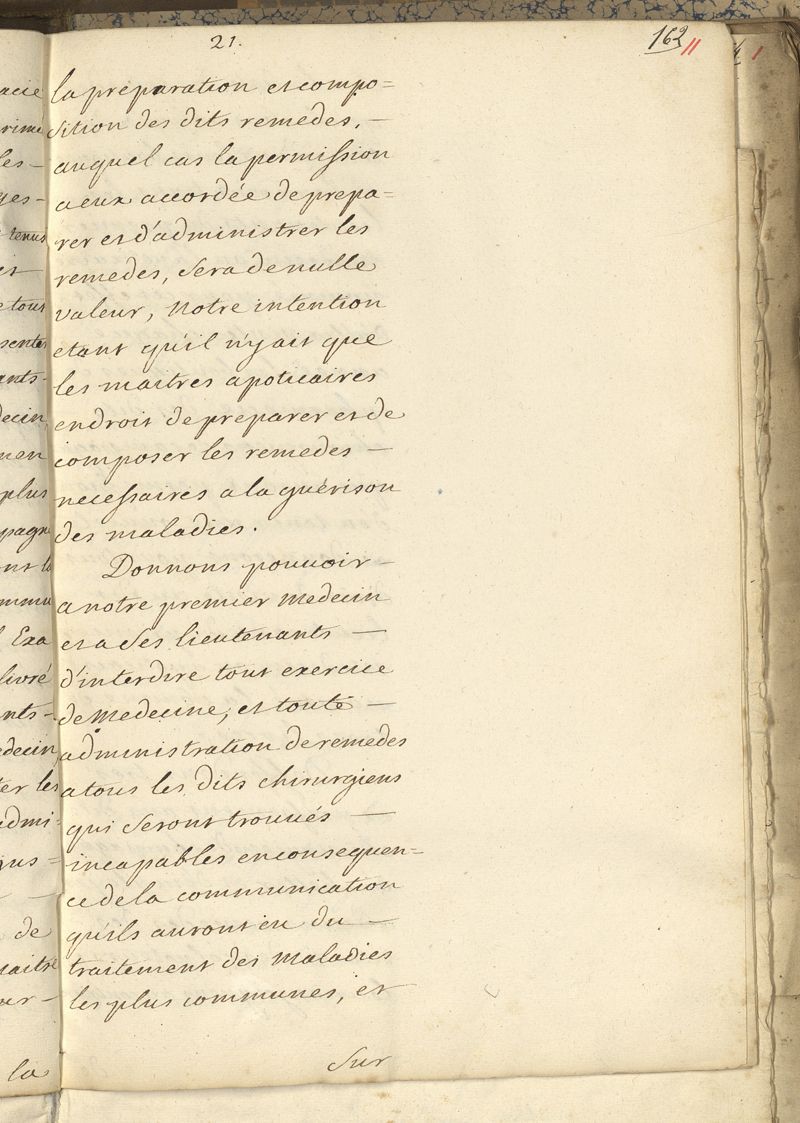 21.
162 11
la préparation et compo=
sition des dits remedes, —
auquel cas la permission
a eux accordée de prepa=
rer et d'administrer les
remedes, sera de nulle
valeur, Notre intention
etant qu'il n'y ait que
les maitres apoticaires
en droit de preparer et de
composer les remedes —
necessaires a la guérison
des maladies.
Donnons pouvoir —
a notre premier medecin
et a ses lieutenants —
d'interdire tout exercice
de medecine, et toute —
administration de remedes
a tous les dits chirurgiens
qui seront trouués —
incapables en consequen=
ce de la communication
qu'ils auront eu du —
traitement des maladies
les plus communes, et
Sur